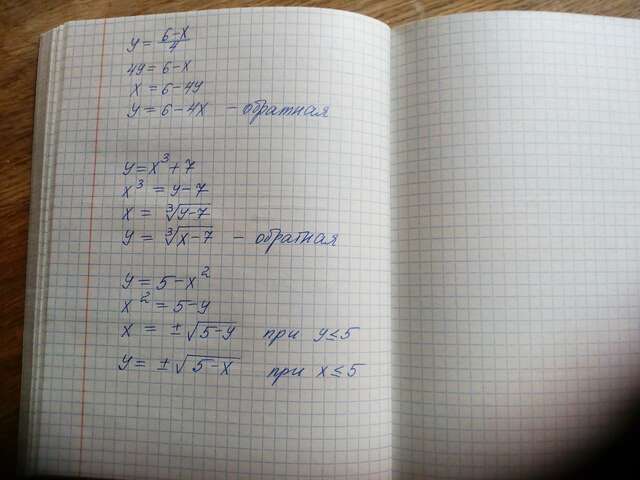 y = (6-x)/4
4y = 6-x
x = 6-4y
y = 6-4x - обратная
y = x³+7
x³ = y-7
x = ∛(y-7)
y = ∛(x-7) - обратная
y = 5-x²
x² = 5-y
x = ±√(5-y) при y≤5
y = ±√(5-x) при x≤5